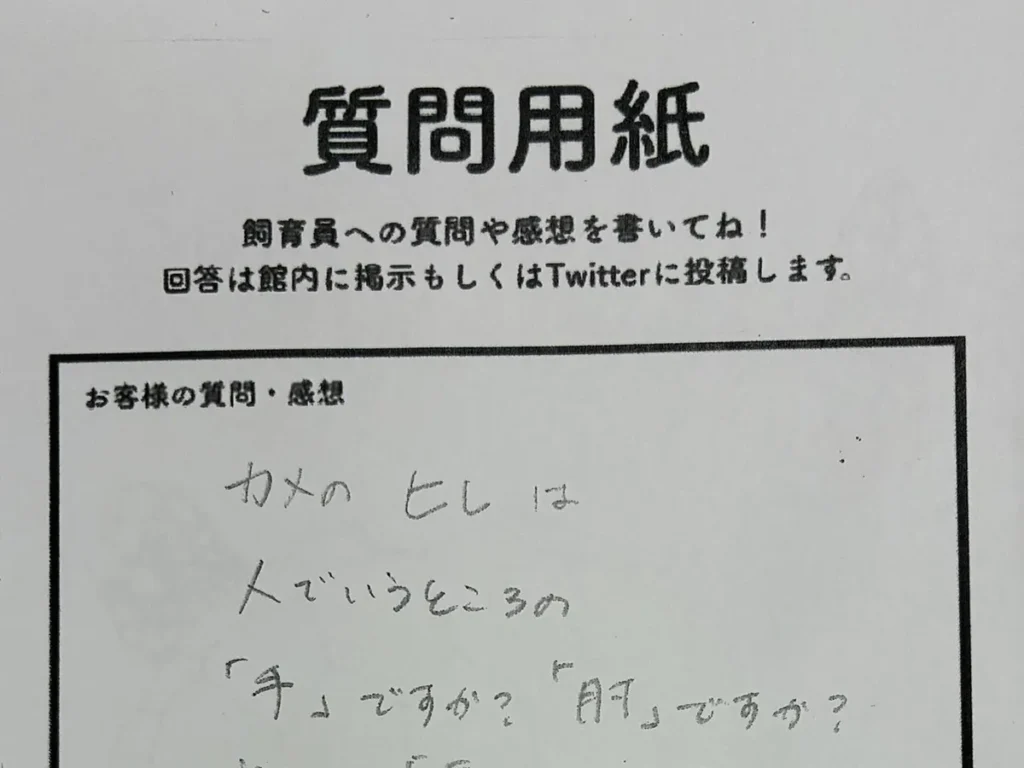 質問用紙
飼育員への質問や感想を書いてね！
回答は館内に掲示もしくはTwitterに投稿します。
お客様の質問・感想
カメの ヒレ は
人でいうところの
「手」ですか？「肘」ですか？